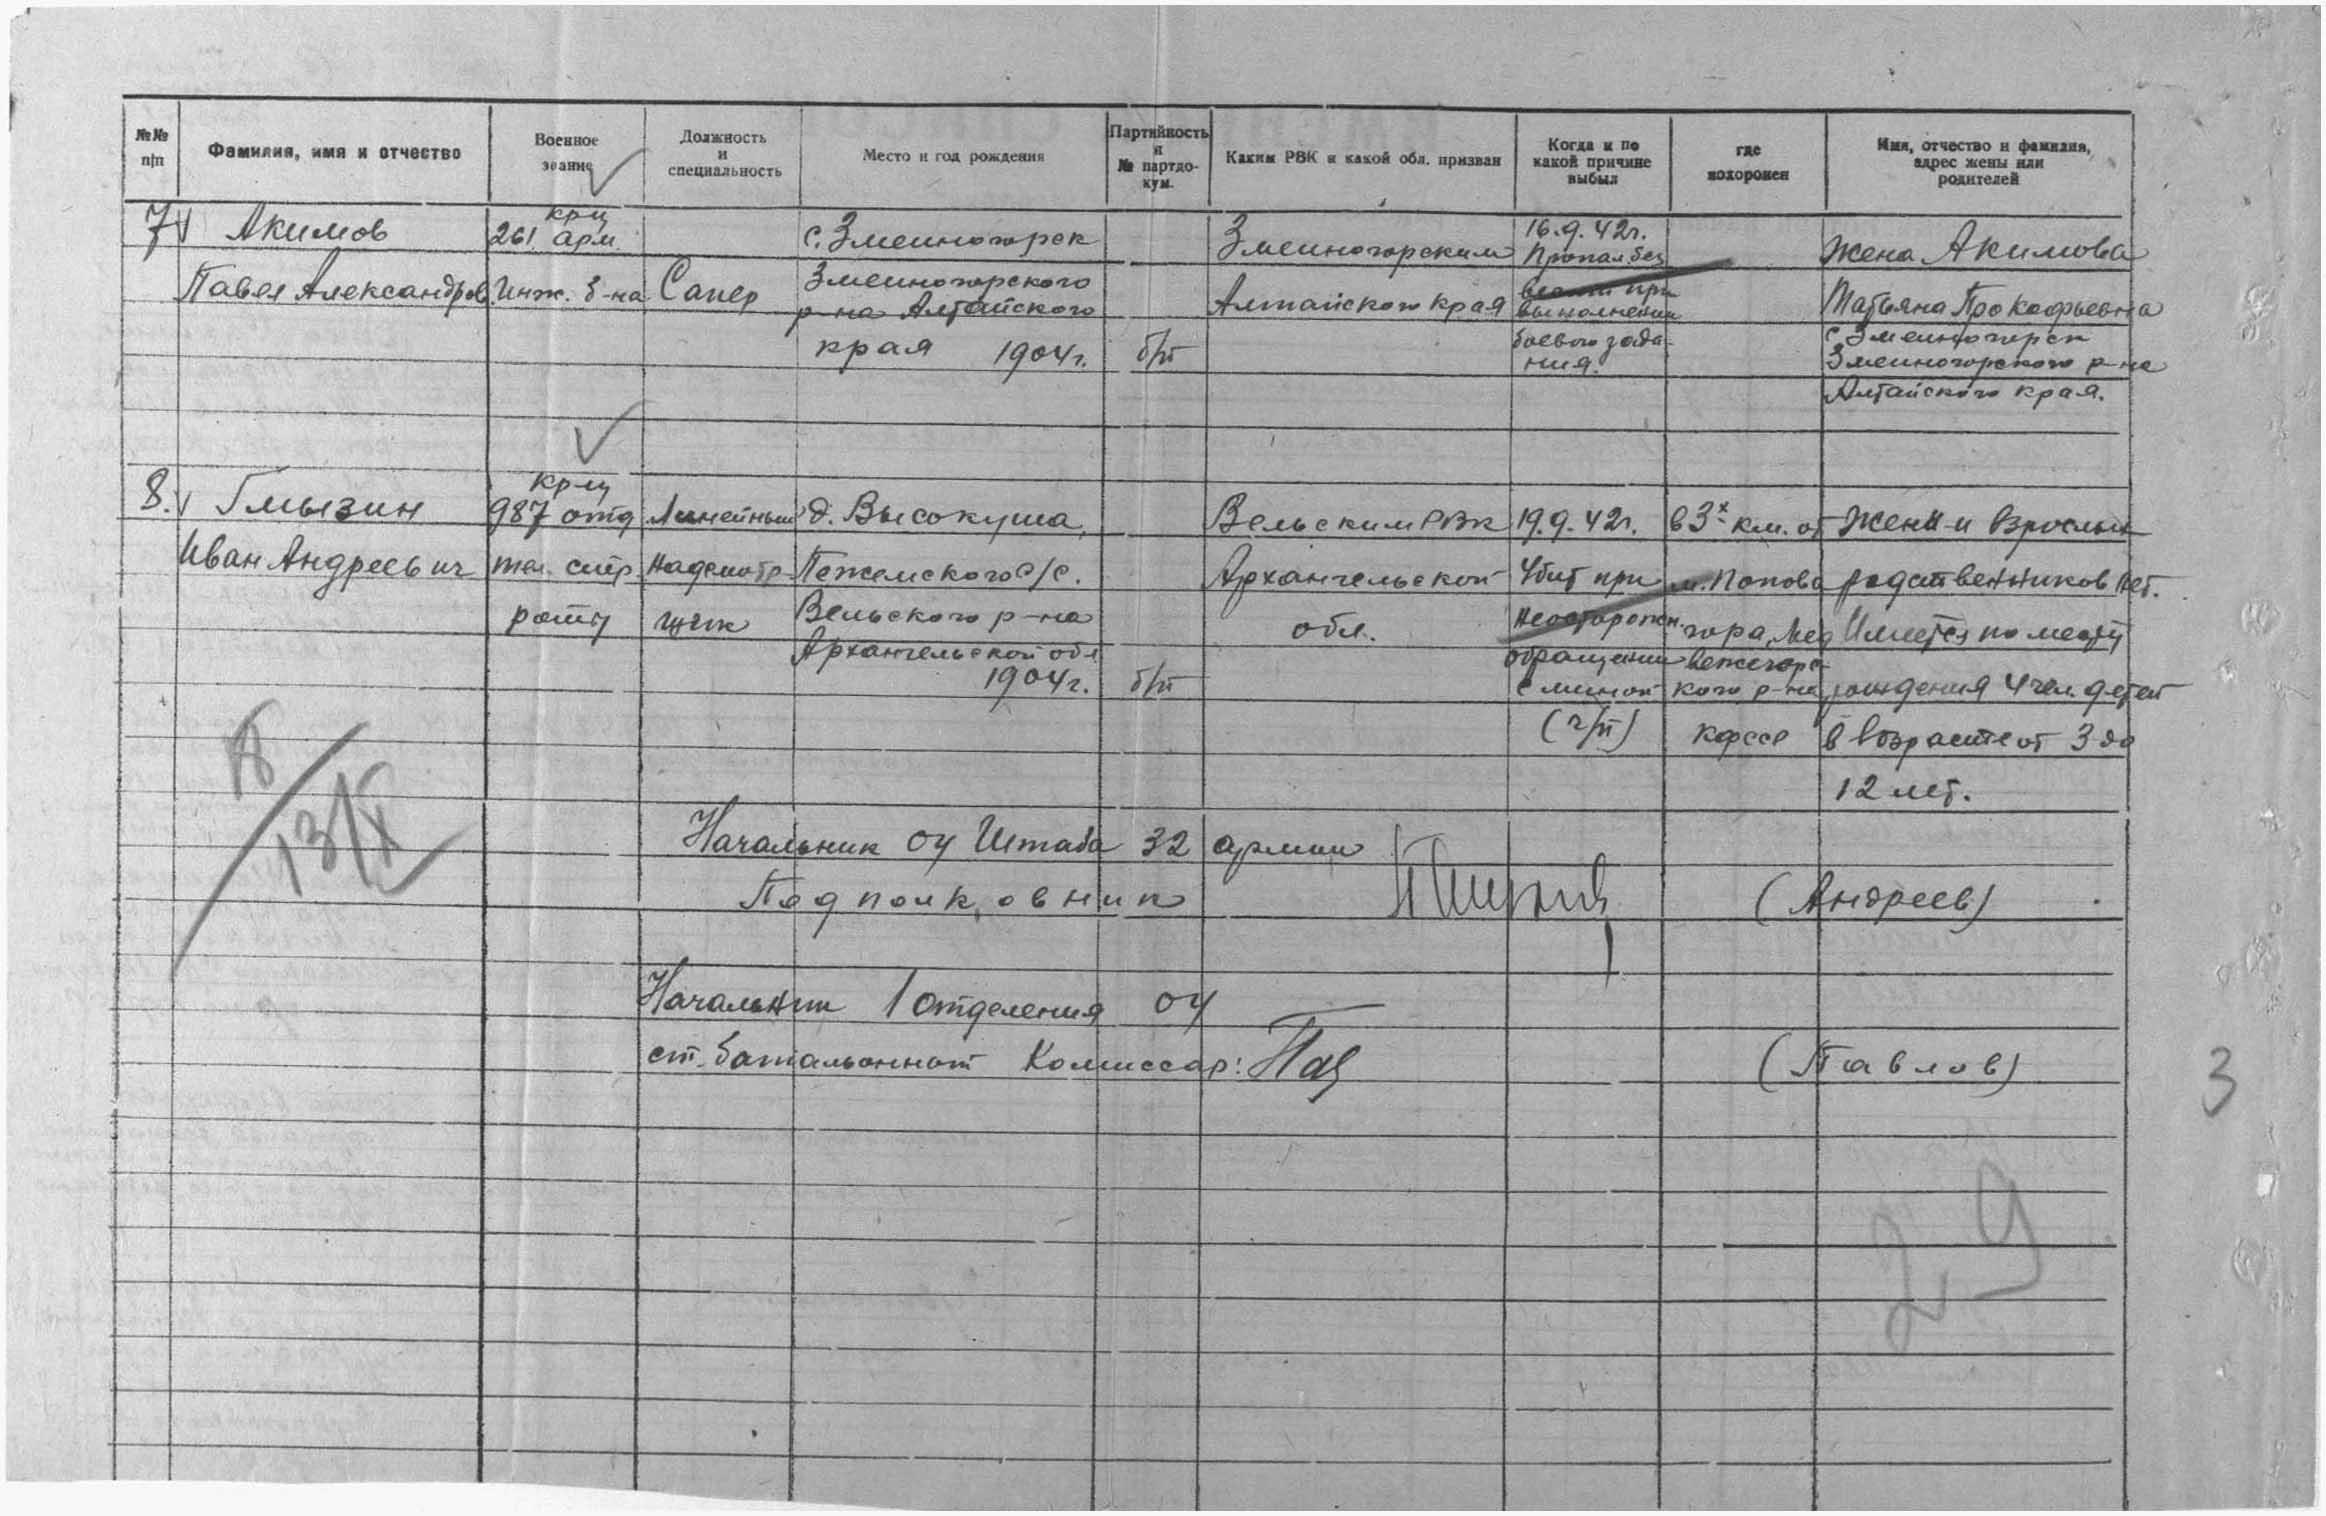 №№ п/п
Фамилия, имя и отчество
Военное звание
Должность и специальность
Место и год рождения
Партийность и № партдокум.
Каким РВК и какой обл. призван
Когда и по какой причине выбыл
где похоронен
Имя, отчество и фамилия, адрес жены или родителей
7
Акимов
Павел Александров.
кр-ц
261 арм.
Инж. б-на
Сапер
с. Змеиногорск
Змеиногорского
р-на Алтайского
края 1904г.
б/п
Змеиногорским
Алтайского края
16.9.42г.
Пропал без
вести при
выполнении
боевого зада-
ния.
Жена Акимова
Татьяна Прокофьевна
с. Змеиногорск
Змеиногорского р-на
Алтайского края.
8.
Гмызин
Иван Андреевич
кр-ц
987 отд
тел. стр
роты
Линейный
Надсмотр-
щик
д. Высокуша,
Пежемского с/с.
Вельского р-на
Архангельской обл
1904г.
б/п
Вельским РВК
Архангельской
обл.
19.9.42г.
Убит при
неосторожн.
обращении
с миной
(ч/п)
в 3х км. от
м. Попова
гора, Мед
вежегорс-
кого р-на
КФССР
Жены и взрослых
родственников нет.
Имеется по месту
рождения 4 чел. детей
в возрасте от 3 до
12 лет.
13/X
Начальник ОУ Штаба 32 армии
Подполковник
(Андреев)
Начальник 1 отделения ОУ
ст. батальонный Комиссар:
(Павлов)
3
29